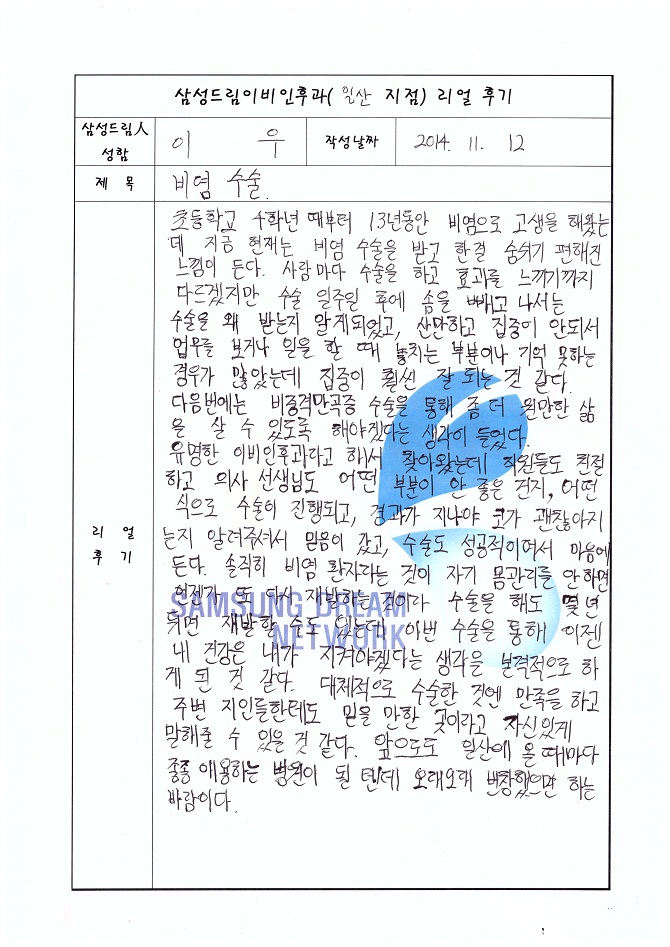 삼성드림이비인후과( 일산 지점) 리얼 후기
삼성드림人 성함
이 우
작성날짜
2014. 11. 12
제 목
비염 수술.
리 얼 후 기
초등학교 4학년 때부터 13년동안 비염으로 고생을 해왔는
데 지금 현재는 비염 수술을 받고 한결 숨쉬기 편해진
느낌이 든다. 사람마다 수술을 하고 효과를 느끼기까지
다르겠지만 수술 일주일 후에 솜을 빼고 나서는
수술을 왜 받는지 알게되었고, 산만하고 집중이 안되서
업무를 보거나 일을 할 때 놓치는 부분이나 기억 못하는
경우가 많았는데 집중이 훨씬 잘 되는 것 같다.
다음번에는 비중격만곡증 수술을 통해 좀 더 원만한 삶
을 살 수 있도록 해야겠다는 생각이 들었다.
유명한 이비인후과라고 해서 찾아왔는데 직원들도 친절
하고 의사 선생님도 어떤 부분이 안 좋은 건지, 어떤
식으로 수술이 진행되고, 경과가 지나야 코가 괜찮아지
는지 알려주셔서 믿음이 갔고, 수술도 성공적이어서 마음에
든다. 솔직히 비염 환자라는 것이 자기 몸관리를 안하면
언젠가 또 다시 재발하는 것이라 수술을 해도 몇 년
뒤면 재발할 수도 있는데 이번 수술을 통해 이젠
내 건강은 내가 지켜야겠다는 생각을 본격적으로 하
게 된 것 같다. 대체적으로 수술한 것엔 만족을 하고
주변 지인들한테도 믿을 만한 곳이라고 자신있게
말해줄 수 있을 것 같다. 앞으로도 일산에 올 때마다
종종 애용하는 병원이 될 텐데 오래오래 번창했으면 하는
바람이다.
SAMSUNG DREAM
NETWORK